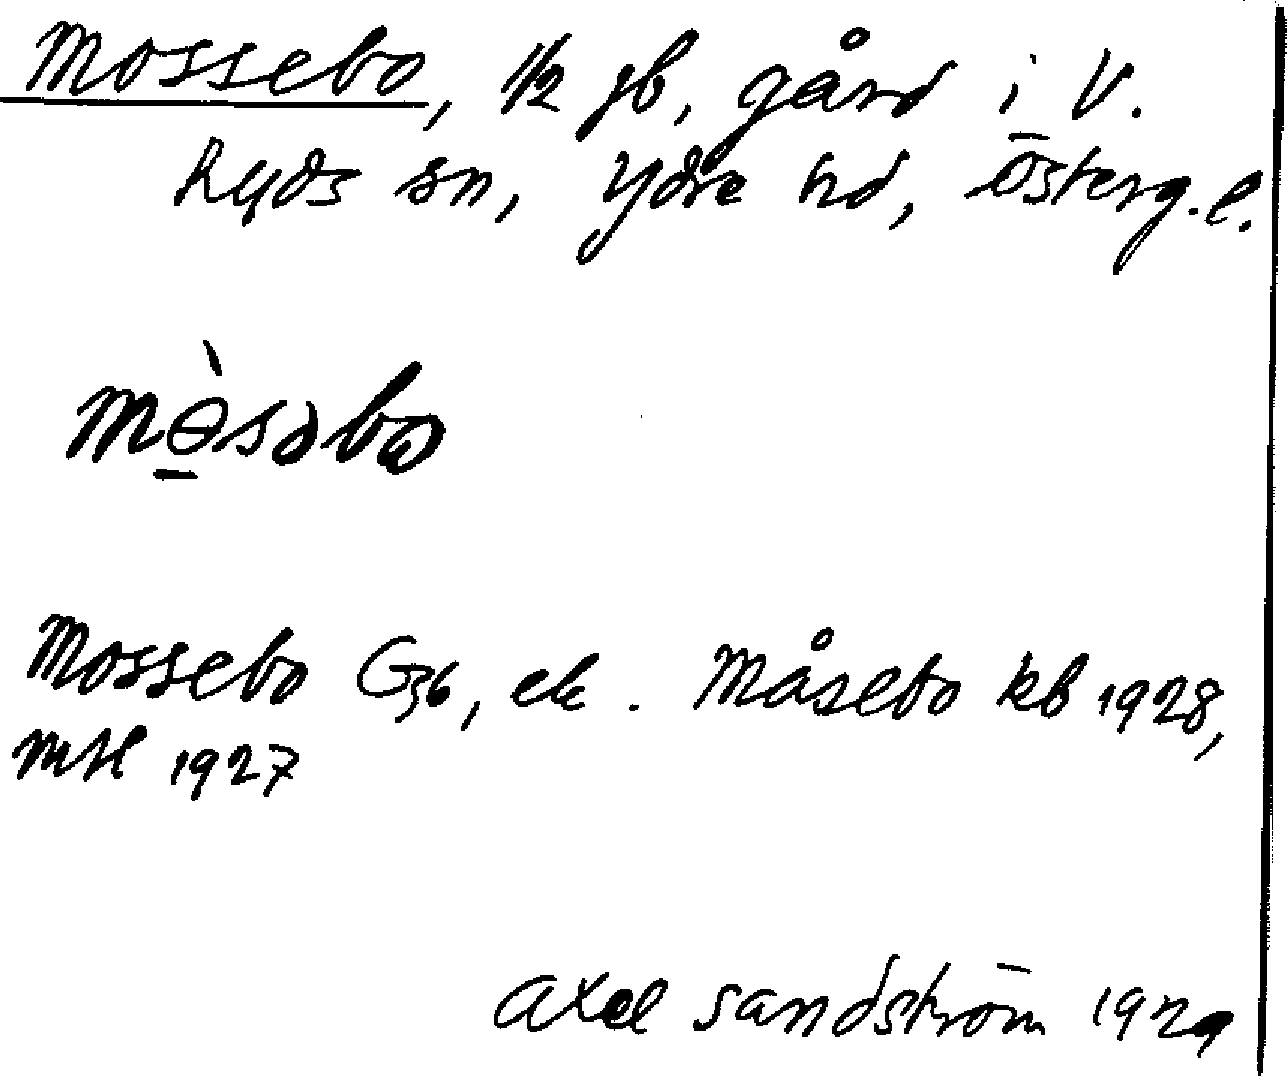 Mossebo, 1/2 gb, gård i V.
Ryds sn, Ydre hd, Österg. l.
mɵ̠̀səbω
Mossebo G36, ek. Måsebo kb 1928,
mtl 1927
Axel Sandström 1929